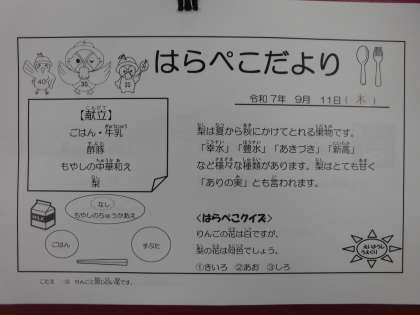 はらぺこだより
令和7年 9月 11日( 木 )
【献立】
ごはん・牛乳
酢豚
もやしの中華和え
梨
梨は夏から秋にかけてとれる果物です。
「幸水」「豊水」「あきづき」「新高」
など様々な種類があります。梨はとても甘く
「ありの実」とも言われます。
なし
もやしのちゅうかあえ
ごはん
すぶた
<はらぺこクイズ>
りんごの花は白ですが、
梨の花は何色でしょう。
①きいろ ②あお ③しろ